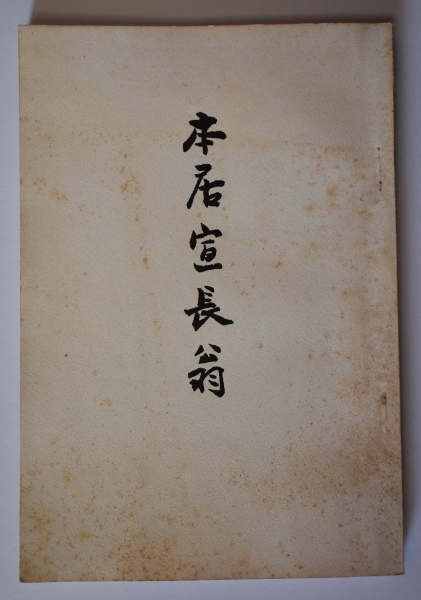 本居宣長翁